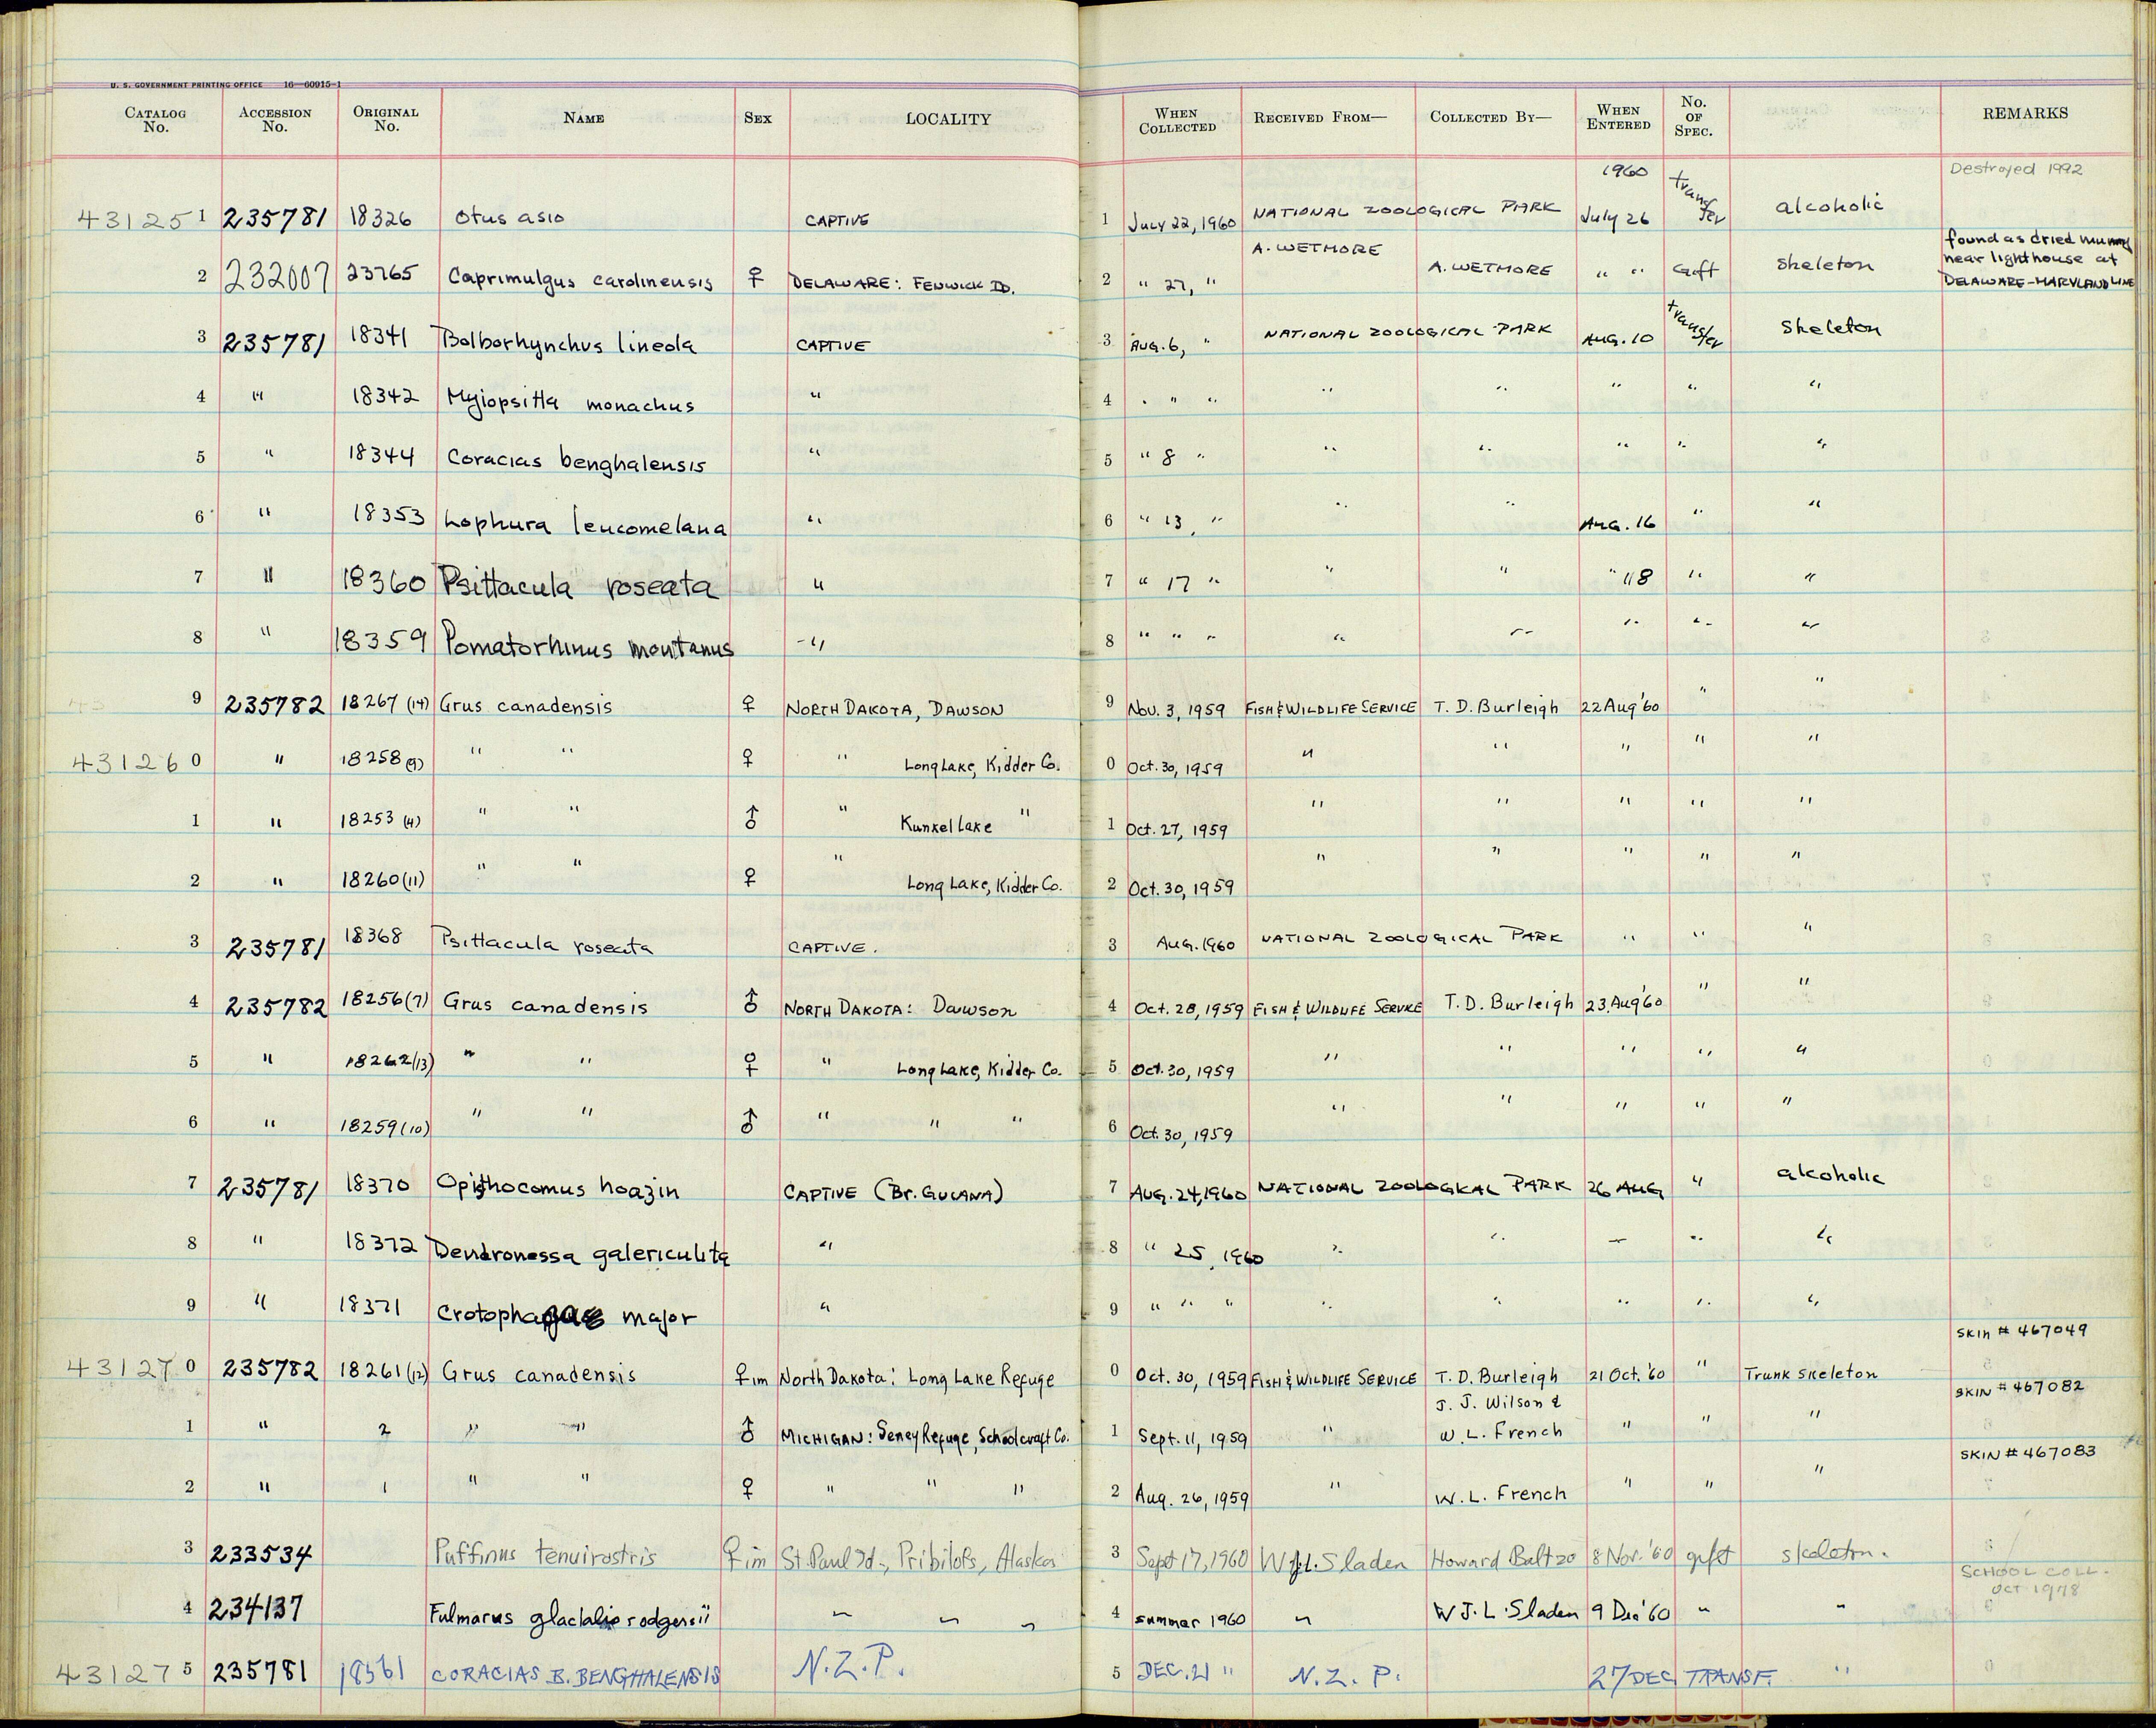 U. S. GOVERNMENT PRINTING OFFICE 16—60915-1
CATALOG No. ACCESSION No. ORIGINAL No. NAME SEX LOCALITY WHEN COLLECTED RECEIVED FROM— COLLECTED BY— WHEN ENTERED No. OF SPEC. REMARKS
1960 Destroyed 1992
43125 1 235781 18326 Otus asio CAPTIVE 1 July 22, 1960 NATIONAL ZOOLOGICAL PARK July 26 transfer alcoholic
2 232007 23765 Caprimulgus carolinensis ♀ DELAWARE: FENWICK ID. 2 " 27, " A. WETMORE A. WETMORE " " Gift skeleton found as dried mummy near lighthouse at DELAWARE-MARYLAND LINE
3 235781 18341 Bolborhynchus lineola CAPTIVE 3 AUG. 6, " NATIONAL ZOOLOGICAL PARK AUG. 10 transfer skeleton
4 " 18342 Myiopsitta monachus " 4 " " " " " " " "
5 " 18344 Coracias benghalensis " 5 " 8 " " " " " "
6 " 18353 Lophura leucomelana " 6 " 13, " " " AUG. 16 " "
7 " 18360 Psittacula roseata " 7 " 17 " " " " 18 " "
8 " 18359 Pomatorhinus montanus " 8 " " " " " " " "
9 235782 18267 (14) Grus canadensis ♀ NORTH DAKOTA, DAWSON 9 Nov. 3, 1959 FISH & WILDLIFE SERVICE T. D. Burleigh 22 Aug '60 " "
43126 0 " 18258 (9) " " ♀ " Long Lake, Kidder Co. 0 Oct. 30, 1959 " " " " "
1 " 18253 (4) " " ♂ " Kunkel Lake " 1 Oct. 27, 1959 " " " " "
2 " 18260 (11) " " ♀ " Long Lake, Kidder Co. 2 Oct. 30, 1959 " " " " "
3 235781 18368 Psittacula roseata CAPTIVE. 3 AUG. 1960 NATIONAL ZOOLOGICAL PARK " " "
4 235782 18256 (7) Grus canadensis ♂ NORTH DAKOTA: Dawson 4 Oct. 28, 1959 FISH & WILDLIFE SERVICE T. D. Burleigh 23 Aug '60 " "
5 " 18262 (13) " " ♀ " Long Lake, Kidder Co. 5 Oct. 30, 1959 " " " " "
6 " 18259 (10) " " ♂ " " " 6 Oct. 30, 1959 " " " " "
7 235781 18370 Opisthocomus hoazin CAPTIVE (BR. GUIANA) 7 AUG. 24, 1960 NATIONAL ZOOLOGICAL PARK 26 AUG " alcoholic
8 " 18372 Dendronessa galericulita " 8 " 25, 1960 " " — " "
9 " 18371 Crotophaga major " 9 " " " " " " " "
43127 0 235782 18261 (12) Grus canadensis ♀ im North Dakota: Long Lake Refuge 0 Oct. 30, 1959 FISH & WILDLIFE SERVICE T. D. Burleigh 21 Oct. '60 " Trunk skeleton skin # 467049
1 " 2 " " ♂ MICHIGAN: Seney Refuge, Schoolcraft Co. 1 Sept. 11, 1959 " J. J. Wilson & W. L. French " " " SKIN # 467082
2 " 1 " " ♀ " " " 2 Aug. 26, 1959 " W. L. French " " " SKIN # 467083
3 233534 Puffinus tenuirostris ♀ im St. Paul Id., Pribilofs, Alaska 3 Sept 17, 1960 W J.L. Sladen Howard Baltzo 8 Nov. '60 gift skeleton.
4 234137 Fulmarus glacialis rodgersii " " " 4 summer 1960 " W J. L. Sladen 9 Dec '60 " " SCHOOL COLL. OCT 1978
43127 5 235781 18561 CORACIAS B. BENGHALENSIS N.Z.P. 5 DEC. 21 " N. Z. P. 27 DEC TRANSF. "